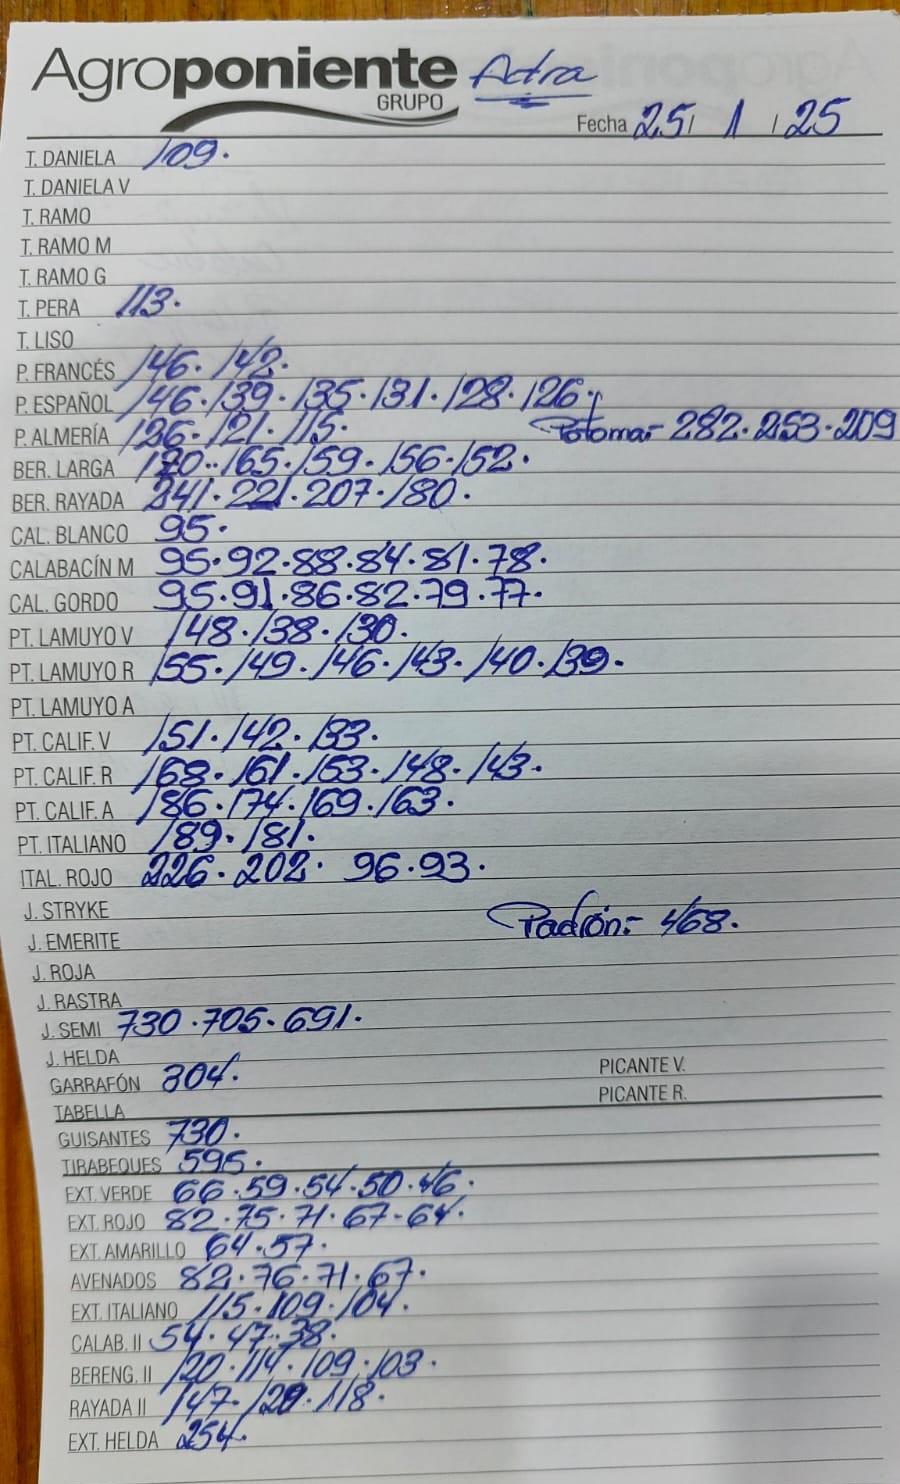 Agroponiente Adra
GRUPO
Fecha 25/ 1 / 25
T. DANIELA 109.
T. DANIELA V
T. RAMO
T. RAMO M
T. RAMO G
T. PERA 113.
T. LISO
P. FRANCÉS 146. 142.
P. ESPAÑOL 146. 139. 135. 131. 128. 126.
P. ALMERÍA 126. 121. 115. Potoma- 282. 253. 209
BER. LARGA 170.. 165. 159. 156. 152.
BER. RAYADA 241. 221. 207. 180.
CAL. BLANCO 95.
CALABACÍN M 95. 92. 88. 84. 81. 78.
CAL. GORDO 95. 91. 86. 82. 79. 77.
PT. LAMUYO V 148. 138. 130.
PT. LAMUYO R 155. 149. 146. 143. 140. 139.
PT. LAMUYO A
PT. CALIF. V 151. 142. 133.
PT. CALIF. R 168. 161. 153. 148. 143.
PT. CALIF. A 186. 174. 169. 163.
PT. ITALIANO 189. 181.
ITAL. ROJO 226. 202. 96. 93.
J. STRYKE
Padrón:- 468.
J. EMERITE
J. ROJA
J. RASTRA
J. SEMI 730. 705. 691.
J. HELDA
GARRAFÓN 304. PICANTE V.
TABELLA PICANTE R.
GUISANTES 730.
TIRABEQUES 595.
EXT. VERDE 66. 59. 54. 50. 46.
EXT. ROJO 82. 75. 71. 67. 64.
EXT. AMARILLO 64. 57.
AVENADOS 82. 76. 71. 67.
EXT. ITALIANO 115. 109. 104.
CALAB. II 54. 47. 38.
BERENG. II 120. 114. 109. 103.
RAYADA II 147. 129. 118.
EXT. HELDA 254.